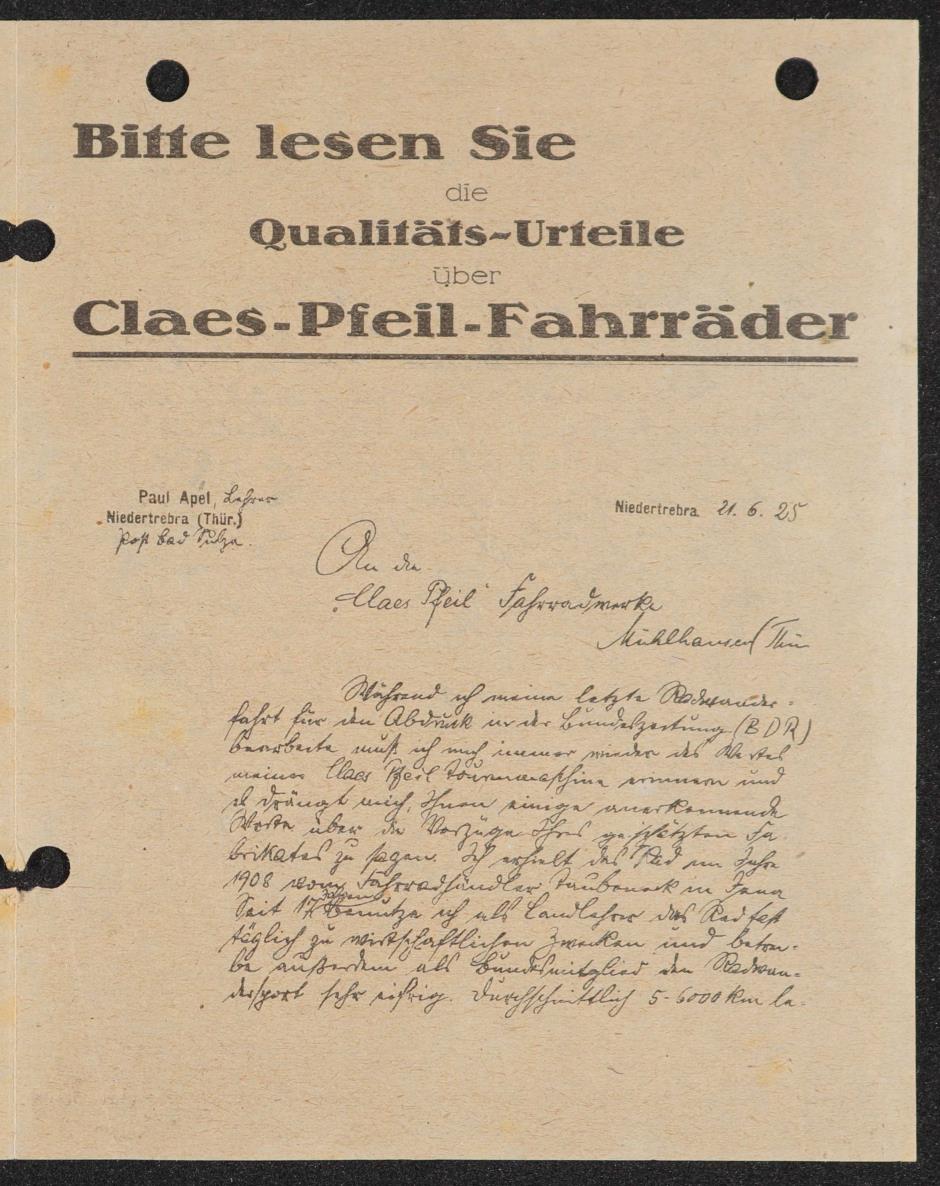 Bitte lesen Sie
die
Qualitäts-Urteile
über
Claes-Pfeil-Fahrräder
Paul Apel, Lehrer
Niedertrebra (Thür.)
Post Bad Sulza.
Niedertrebra 21. 6. 25
An die
„Claes Pfeil" Fahrradwerke
Mühlhausen (Thür
Während ich meine letzte Radwander-
fahrt für den Abdruck in der Bundeszeitung (BDR)
bearbeite muß ich mich immer wieder des Wertes
meiner Claes Pfeil Tourenmaschine erinnern und
es drängt mich, Ihnen einige anerkennende
Worte über die Vorzüge Ihres geschätzten Fa-
brikates zu sagen. Ich erhielt das Rad im Jahre
1908 vom Fahrradhändler Taubeneck in Jena
Seit 17 Jahren benutze ich als Landlehrer das Rad fast
täglich zu wirtschaftlichen Zwecken und betrei-
be außerdem als Bundesmitglied den Radwan-
dersport sehr eifrig. Durchschnittlich 5-6000 km le-